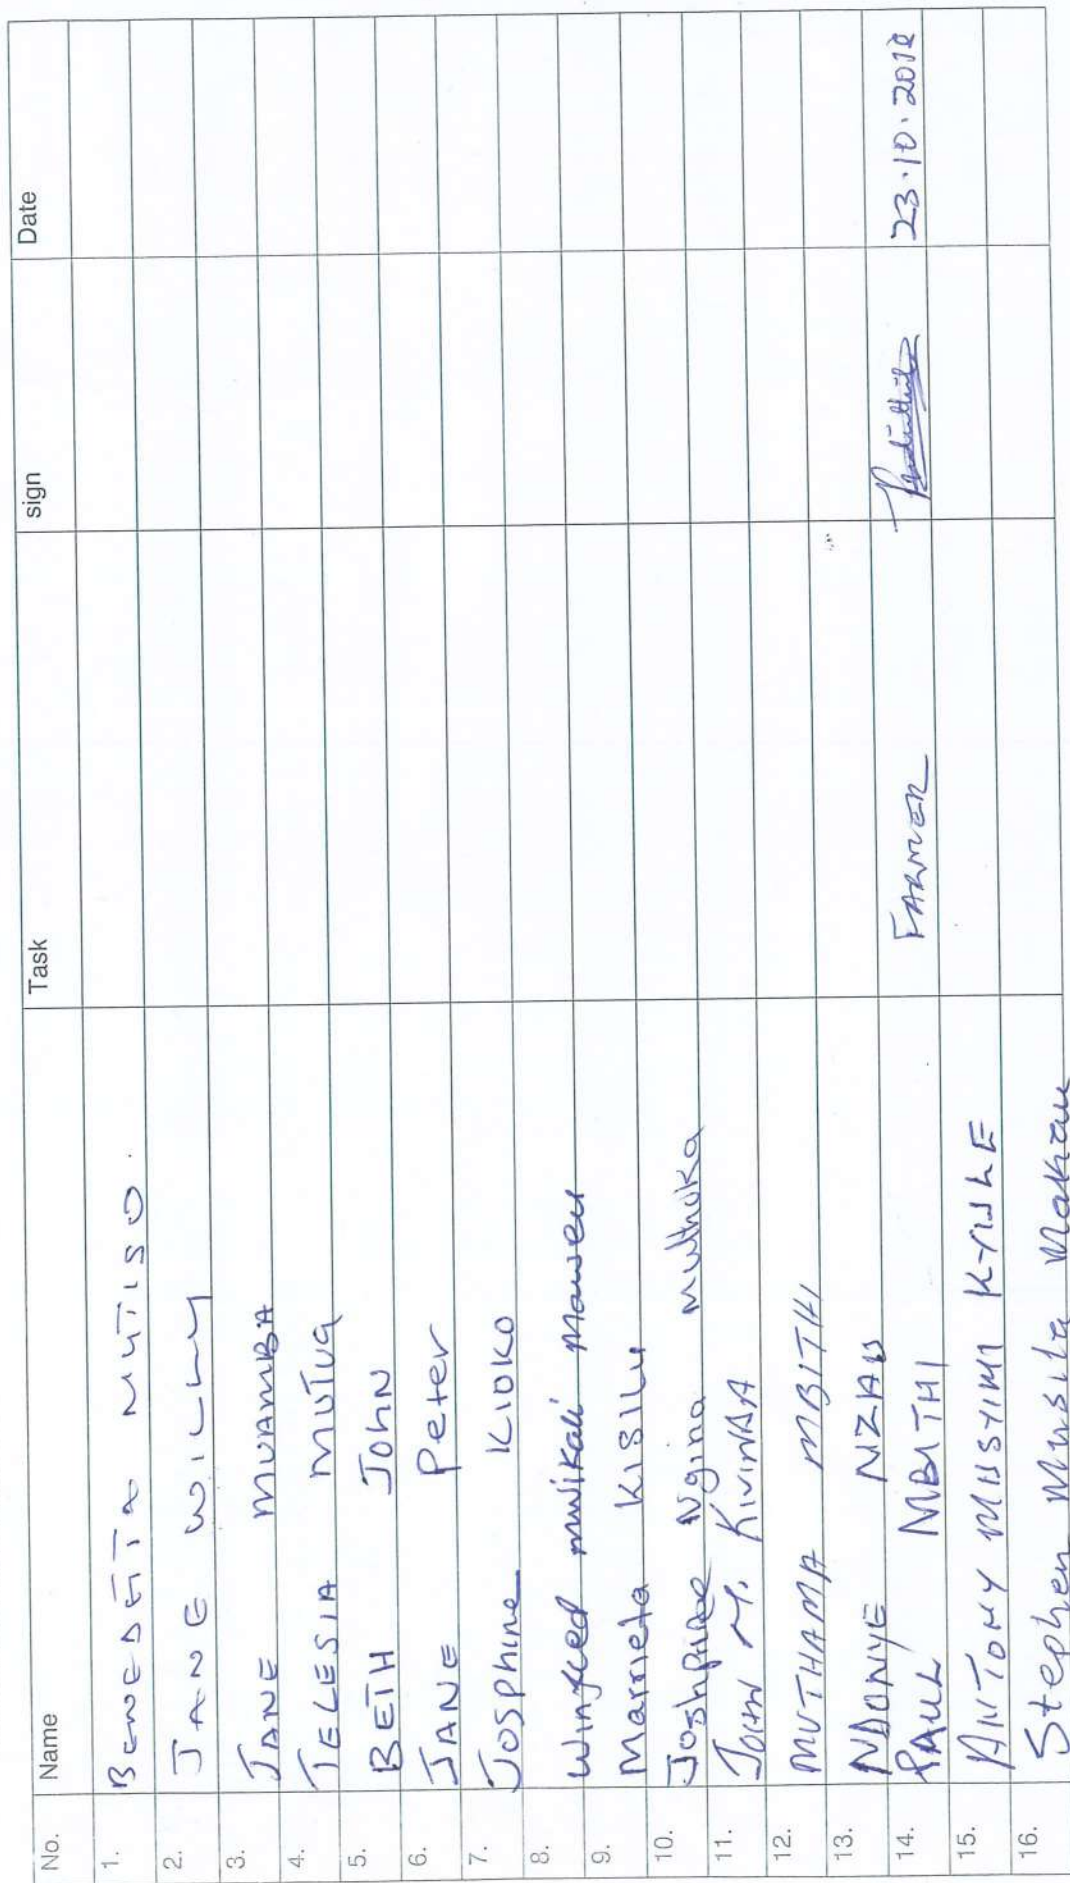 No. Name Task sign Date
1. BENEDETTA MUTISO.
2. JANE WILLY
3. JANE MUAMBA
4. TELESIA MUTUA
5. BETH JOHN
6. JANE Peter
7. Josphine KIOKO
8. Winfred mwikali Maweu
9. Marrieta KISILU
10. Joshpine Ngina muthoka
11. JOHN M. KIVINDA
12. MUTHAMA MBITHI
13. NDONYE NZAU
14. PAUL MBITHI FARMER 23.10.2018
15. ANTONY MUSYIMI
16. Stephen Musila Makau